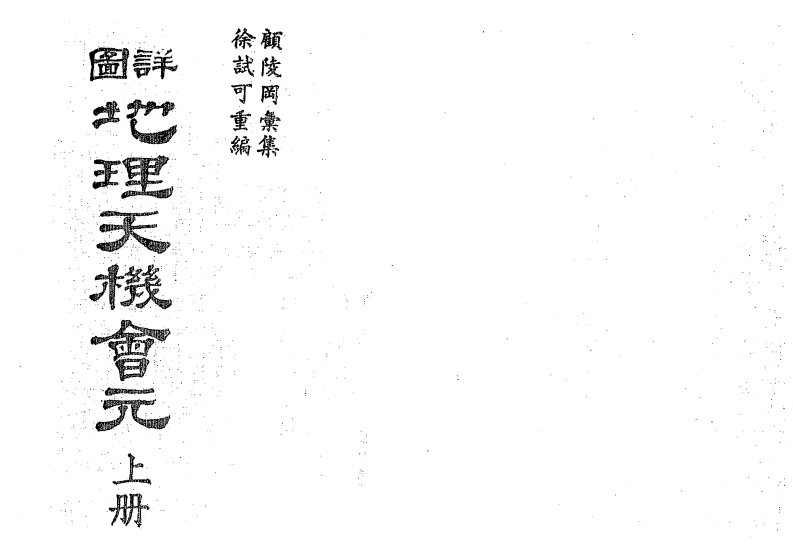 顧陵岡彙集
徐試可重編
詳圖
地理天機會元
上册